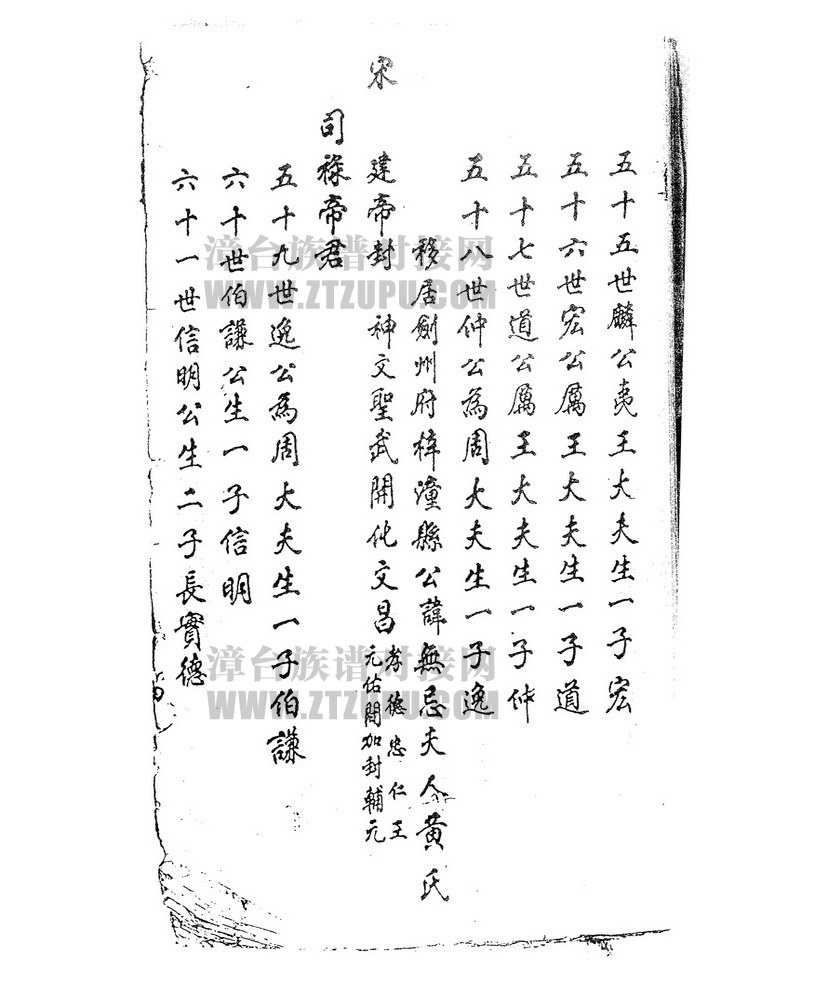 五十五世麟公夷王大夫生一子宏
五十六世宏公厲王大夫生一子道
五十七世道公厲王大夫生一子仲
五十八世仲公為周大夫生一子逸
移居劍州府梓潼縣公諱無忌夫人黃氏
宋
建帝封 神文聖武開化文昌
孝德忠仁王
元佑間加封輔元
司祿帝君
五十九世逸公為周大夫生一子伯謙
六十世伯謙公生一子信明
六十一世信明公生二子長實德
漳台族谱对接网
WWW.ZTZUPU.COM
漳台族谱对接网
WWW.ZTZUPU.COM